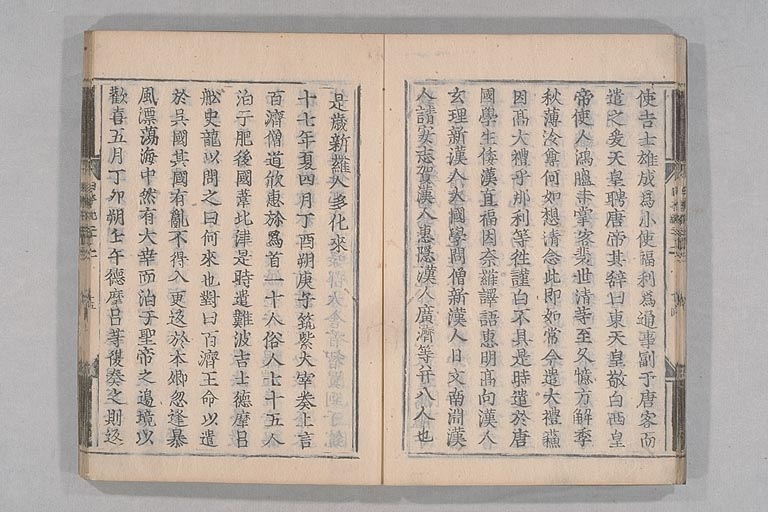 使吉士雄成爲小使福利爲通事副于唐客而
遣之爰天皇聘唐帝其辭曰東天皇敬白西皇
帝使人鴻臚寺掌客裴世清等至久憶方解季
秋薄冷尊何如想清悆此即如常今遣大禮蘇
因高大禮乎那利等徃謹白不具是時遣於唐
國學生倭漢直福因奈羅譯語惠明高向漢人
玄理新漢人大國學問僧新漢人日文南淵漢
人請安志賀漢人惠隱漢人廣濟等并八人也
是歲新羅人多化來
十七年夏四月丁酉朔庚子筑紫大宰奏上言
百濟僧道欣惠弥爲首一十人俗人七十五人
泊于肥後國葦北津是時遣難波吉士德摩呂
舩史龍以問之曰何來也對曰百濟王命以遣
於吳國其國有亂不得入更返於本鄉忽逢暴
風漂蕩海中然有大幸而泊于聖帝之邊境以
歡喜五月丁卯朔壬午德摩呂等復奏之則返